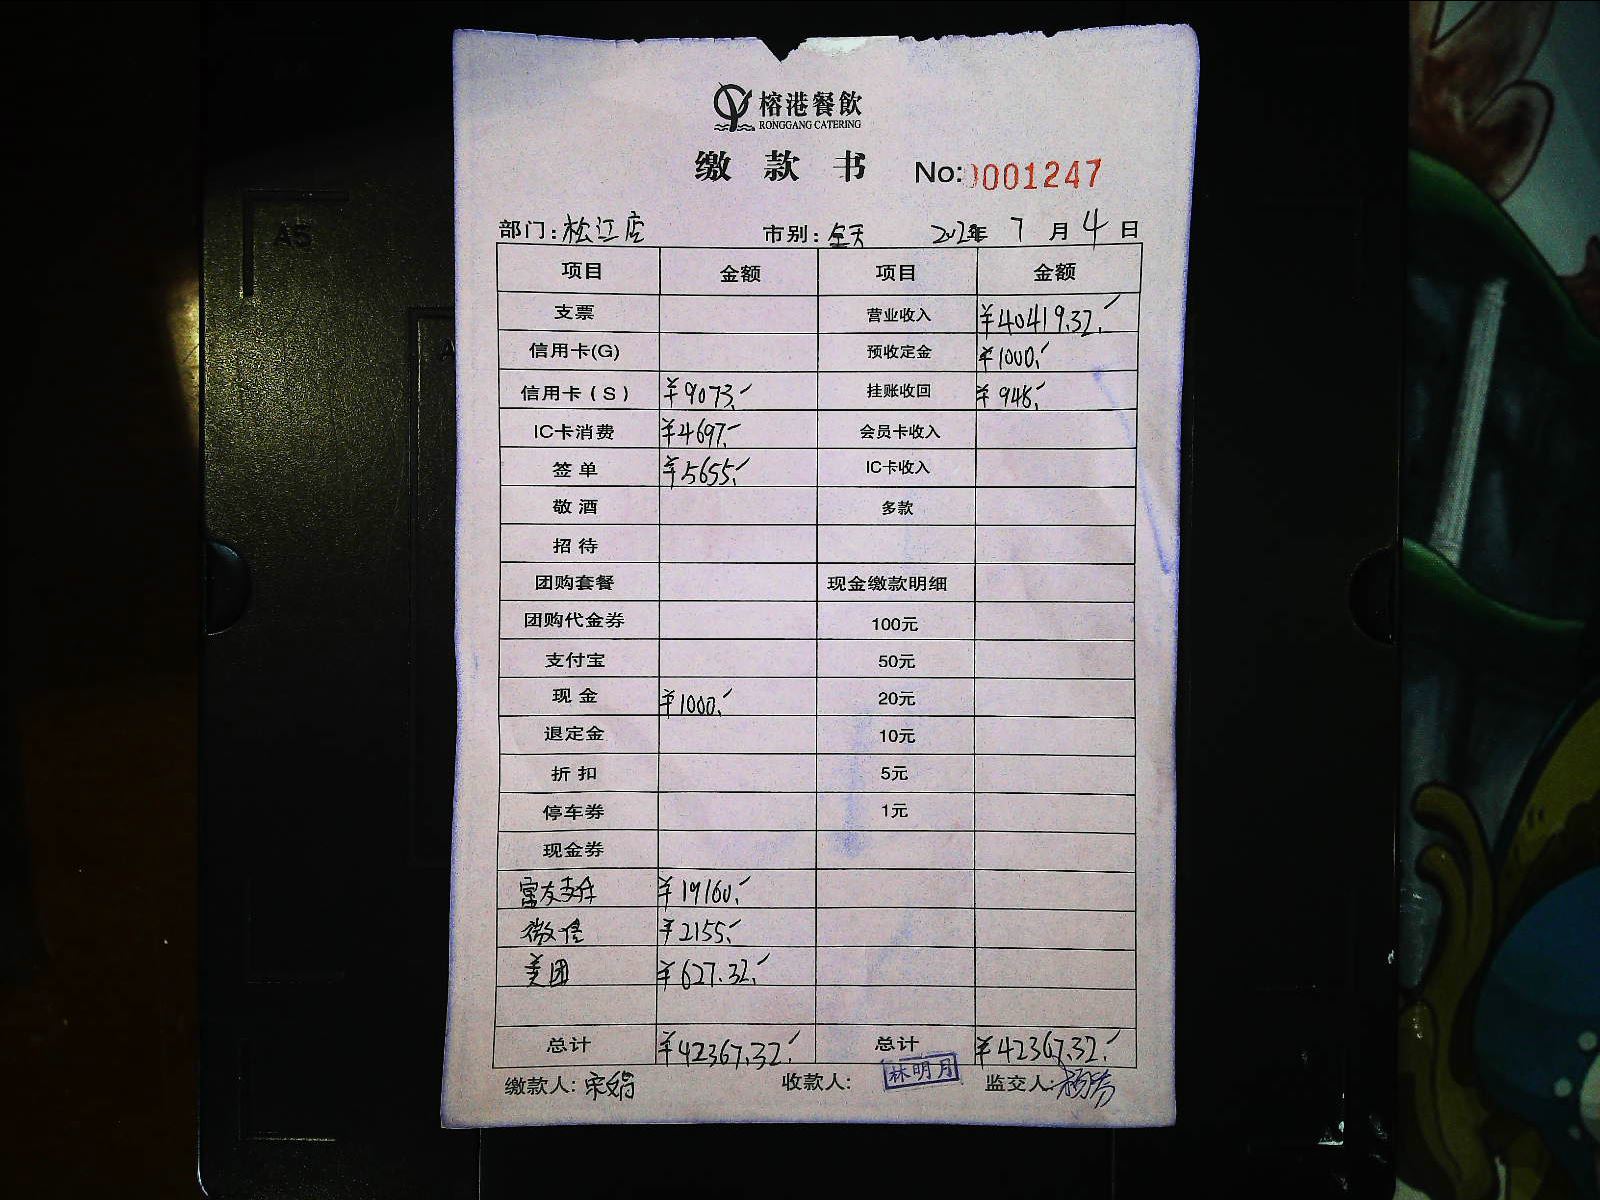 榕港餐飲
RONGGANG CATERING
缴 款 书 No:0001247
部门:松江店 市别:全天 年 7 月 4 日
项目 金额 项目 金额
支票 营业收入 ¥40419.32.
信用卡(G) 预收定金 ¥1000.
信用卡(S) ¥9073. 挂账收回 ¥948.
IC卡消费 ¥4697. 会员卡收入
签单 ¥5655. IC卡收入
敬酒 多款
招待
团购套餐 现金缴款明细
团购代金券 100元
支付宝 50元
现金 ¥1000. 20元
退定金 10元
折扣 5元
停车券 1元
现金券
富友支付 ¥19160.
微信 ¥2155.
美团 ¥627.32.
总计 ¥42367.32. 总计 ¥42367.32.
缴款人: 收款人: 林明月 监交人:
A5